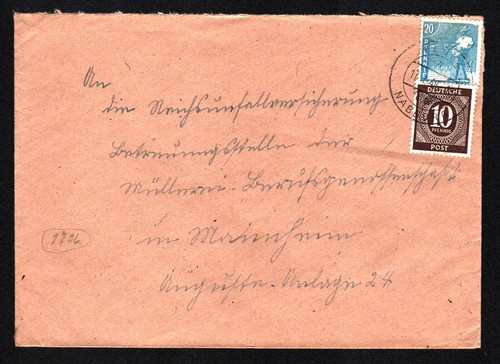 20
DEUTSCHE
10
PFENNIG
POST
NABB
An
die Reichsunfallversicherung
Betreuungsstelle der
Müllerei-Berufsgenossenschaft
in Mannheim
Augusta-Anlage 24